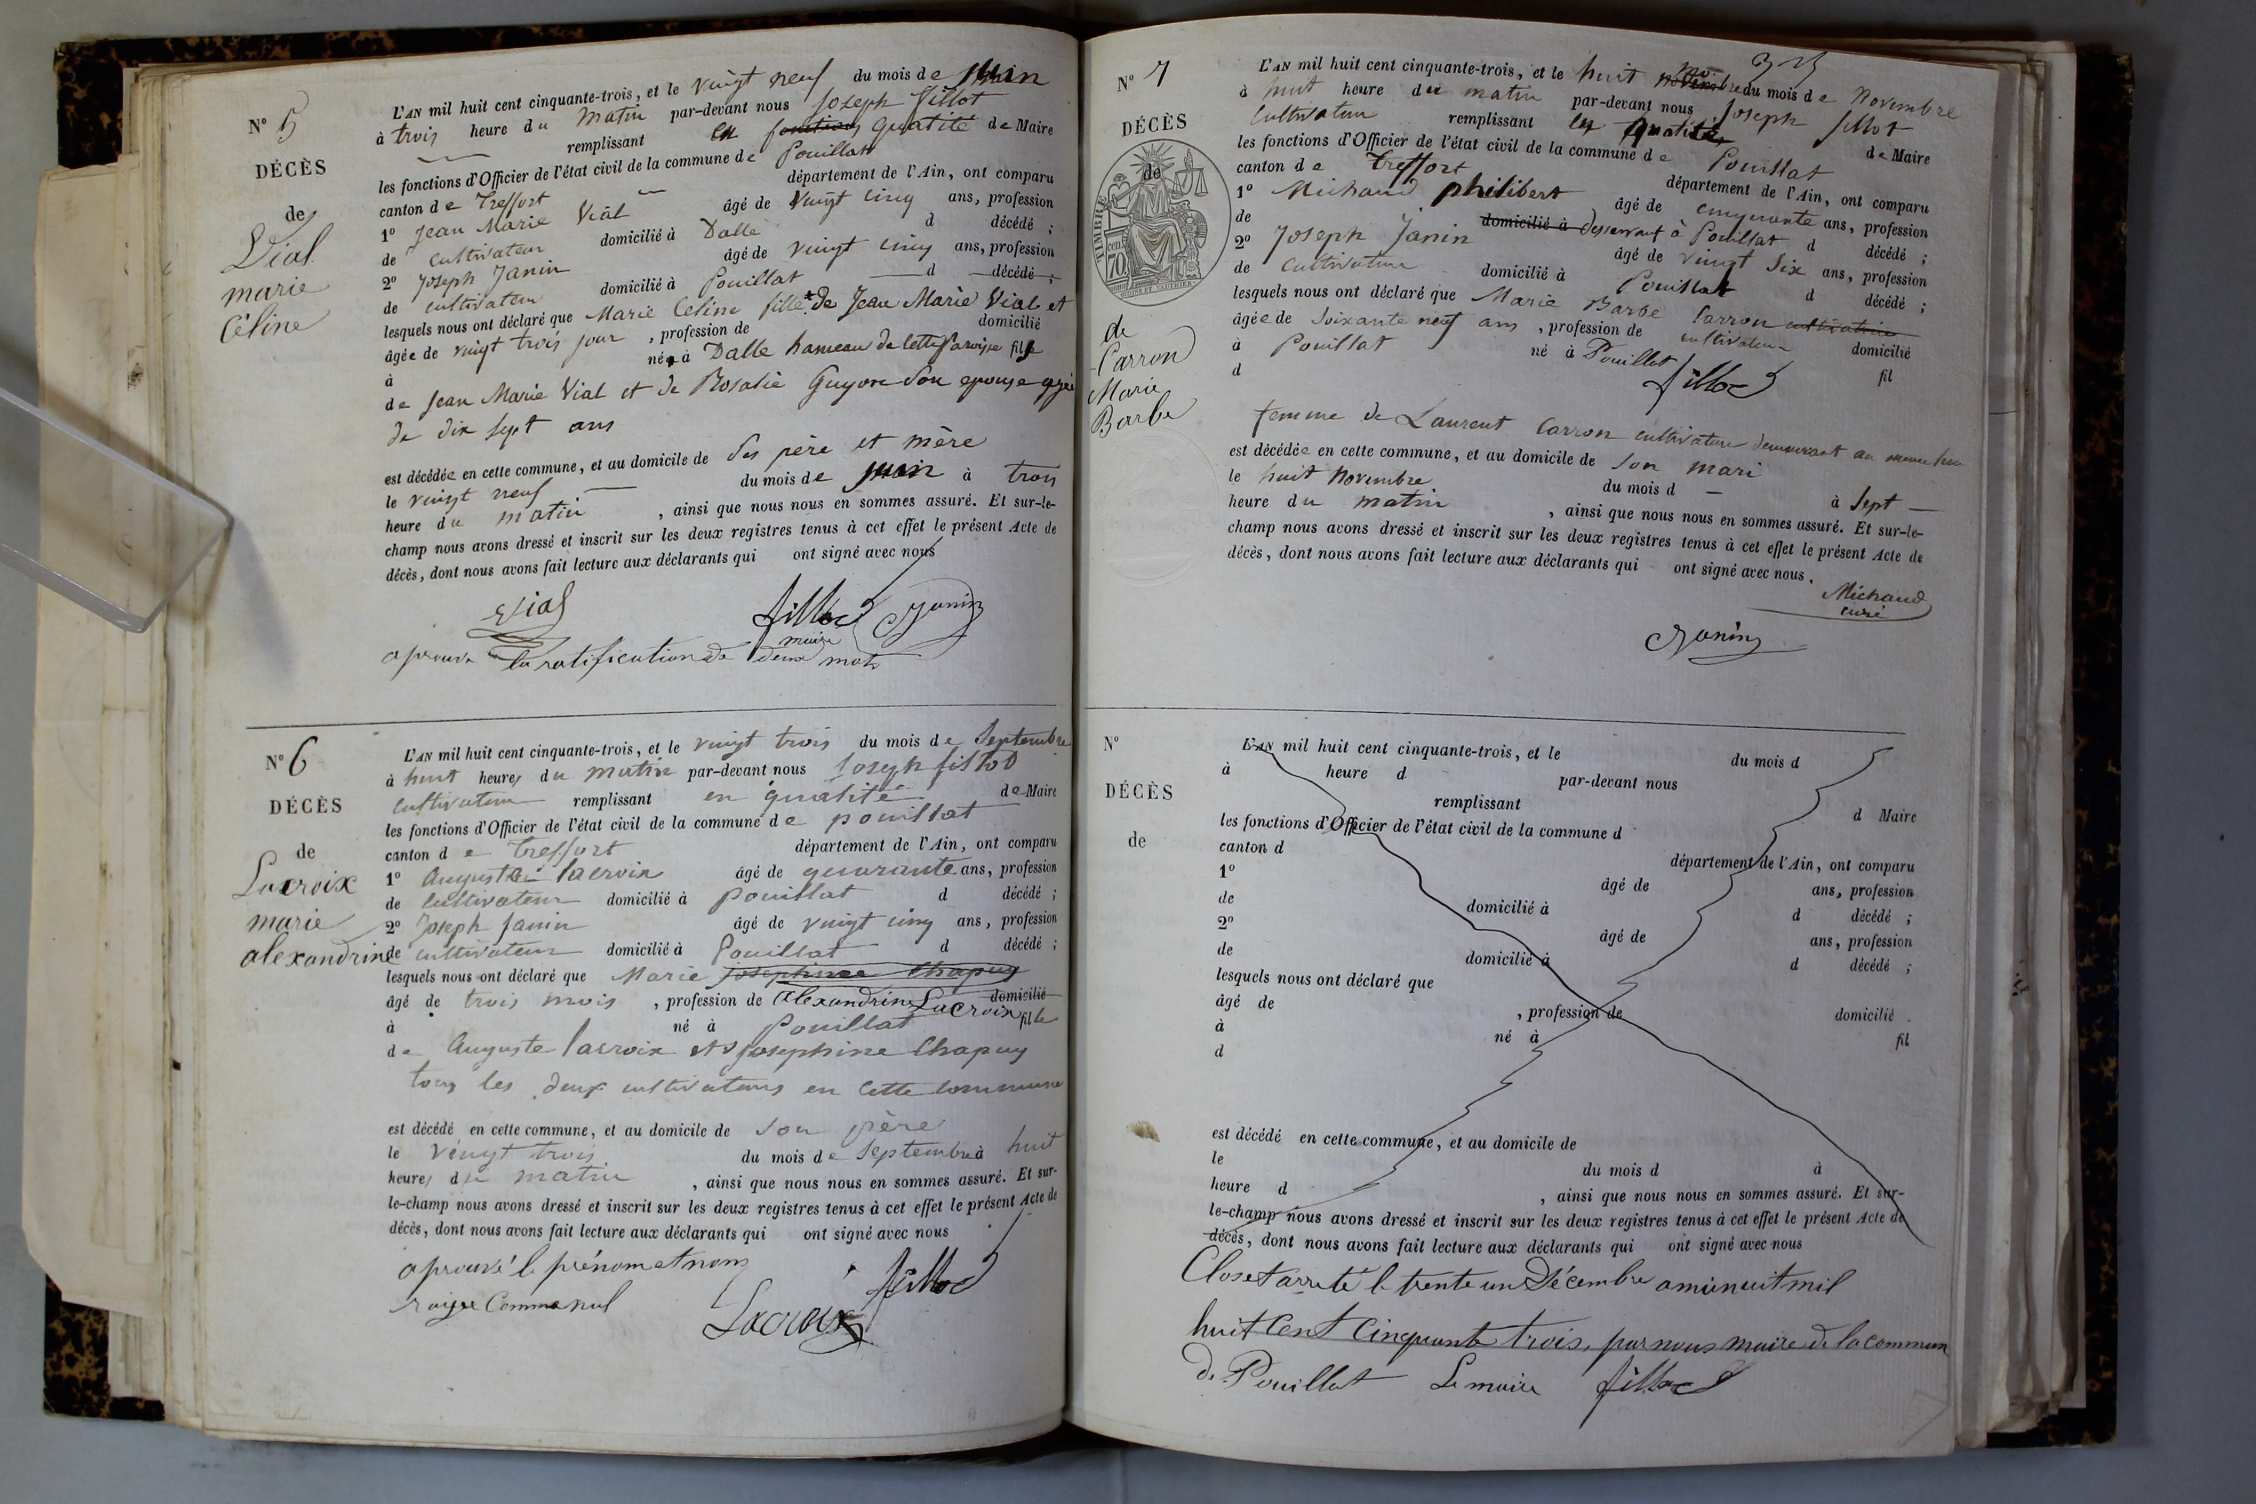 N° 5
DÉCÈS
de
Vial
marie
Céline
L'AN mil huit cent cinquante-trois, et le vingt neuf du mois de juin
à trois heure du matin par-devant nous Joseph fillot
remplissant en fonctions qualité de Maire
les fonctions d'Officier de l'état civil de la commune de Pouillat
canton de Treffort département de l'Ain, ont comparu
1° Jean Marie Vial âgé de vingt cinq ans, profession
de cultivateur domicilié à Dalle d décédé ;
2° Joseph Janin âgé de vingt cinq ans, profession
de cultivateur domicilié à Pouillat d décédé ;
lesquels nous ont déclaré que Marie Céline fille de Jean Marie Vial et
âgée de vingt trois jour , profession de domicilié
à née à Dalle hameau de cette Paroisse fille
de Jean Marie Vial et de Rosalie Guyon son epouse agée
de dix sept ans
est décédée en cette commune, et au domicile de ses père et mère
le vingt neuf du mois de juin à trois
heure du matin , ainsi que nous nous en sommes assuré. Et sur-le-
champ nous avons dressé et inscrit sur les deux registres tenus à cet effet le présent Acte de
décès, dont nous avons fait lecture aux déclarants qui ont signé avec nous
Vial fillod Janin
maire
aprouve la ratification de deux mots
N° 6
DÉCÈS
de
Lacroix
marie
alexandrine
L'AN mil huit cent cinquante-trois, et le vingt trois du mois de Septembre
à huit heures du matin par-devant nous Joseph fillod
cultivateur remplissant en qualité de Maire
les fonctions d'Officier de l'état civil de la commune de pouillat
canton de Treffort département de l'Ain, ont comparu
1° Auguste lacroix âgé de quarante ans, profession
de cultivateur domicilié à pouillat d décédé ;
2° Joseph Janin âgé de vingt cinq ans, profession
de cultivateur domicilié à Pouillat d décédé ;
lesquels nous ont déclaré que Marie josephine Chapuy
âgé de trois mois , profession de alexandrine Lacroix domicilié
à né à Pouillat fille
de Auguste lacroix et Josephine Chapuy
tous les deux cultivateurs en cette commune
est décédé en cette commune, et au domicile de son père
le vingt trois du mois de Septembre à huit
heures du matin , ainsi que nous nous en sommes assuré. Et sur-
le-champ nous avons dressé et inscrit sur les deux registres tenus à cet effet le présent Acte de
décès, dont nous avons fait lecture aux déclarants qui ont signé avec nous
aprouvé le prénom et nom
rayée Comme nul
Lacroix fillod
N° 7
DÉCÈS
de
TIMBRE
70
de
Carron
Marie
Barbe
L'AN mil huit cent cinquante-trois, et le huit novembre du mois de Novembre
à huit heure du matin par-devant nous Joseph fillot
Cultivateur remplissant en qualité de Maire
les fonctions d'Officier de l'état civil de la commune de Pouillat
canton de Treffort département de l'Ain, ont comparu
1° Michaud philibert âgé de cinquante ans, profession
de domicilié à desservant à Pouillat d décédé ;
2° Joseph Janin âgé de vingt six ans, profession
de cultivateur domicilié à Pouillat d décédé ;
lesquels nous ont déclaré que Marie Barbe Carron cultivatrice
âgée de soixante neuf ans , profession de cultivateur domicilié
à Pouillat né à Pouillat fil
d fillod
femme de Laurent Carron cultivateur demeurant au meme lieu
est décédée en cette commune, et au domicile de son mari
le huit Novembre du mois d à sept
heure du matin , ainsi que nous nous en sommes assuré. Et sur-le-
champ nous avons dressé et inscrit sur les deux registres tenus à cet effet le présent Acte de
décès, dont nous avons fait lecture aux déclarants qui ont signé avec nous.
Michaud
curé
Janin
N°
DÉCÈS
de
L'AN mil huit cent cinquante-trois, et le du mois d
à heure d par-devant nous
remplissant d Maire
les fonctions d'Officier de l'état civil de la commune d
canton d département de l'Ain, ont comparu
1° âgé de ans, profession
de domicilié à d décédé ;
2° âgé de ans, profession
de domicilié à d décédé ;
lesquels nous ont déclaré que
âgé de , profession de domicilié
à né à fil
d
est décédé en cette commune, et au domicile de
le du mois d à
heure d , ainsi que nous nous en sommes assuré. Et sur-
le-champ nous avons dressé et inscrit sur les deux registres tenus à cet effet le présent Acte de
décès, dont nous avons fait lecture aux déclarants qui ont signé avec nous
Clos et arreté le trente un Décembre a minuit mil
huit Cent Cinquante trois, par nous maire de la commune
de Pouillat Le maire fillod